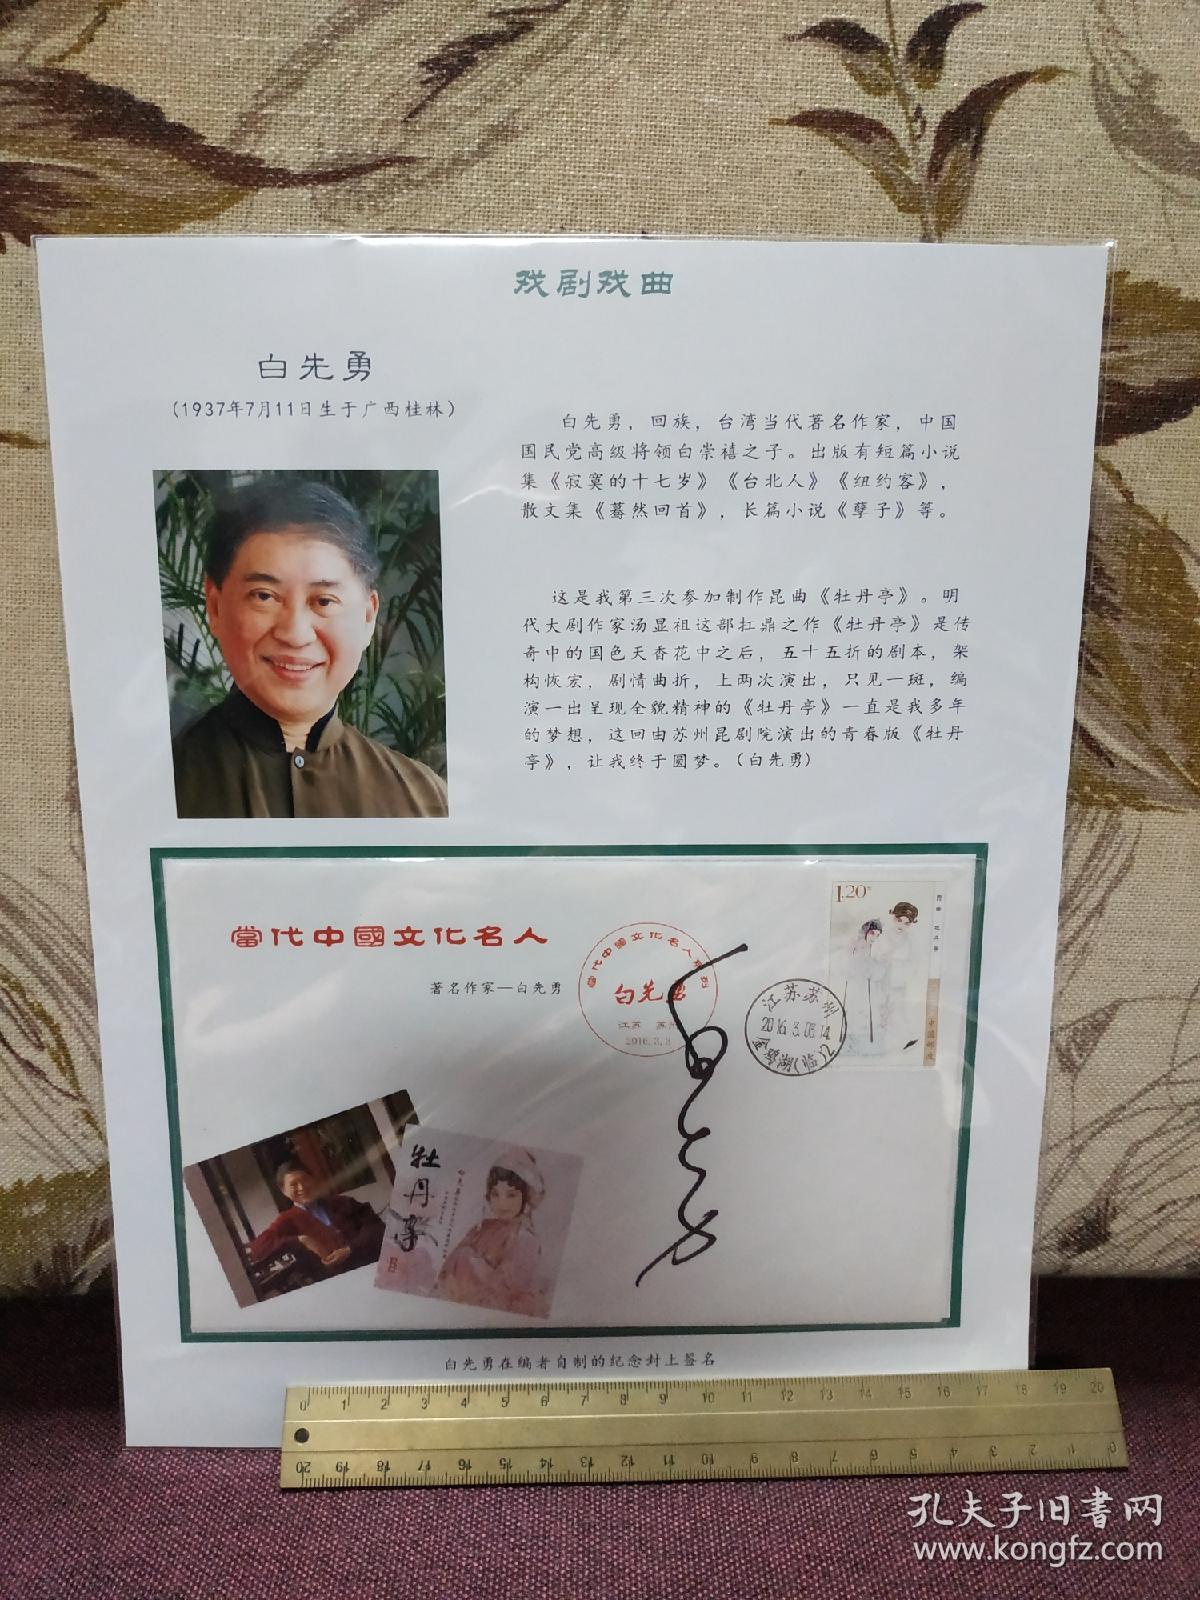 戏剧戏曲
白先勇
（1937年7月11日生于广西桂林）
白先勇，回族，台湾当代著名作家，中国
国民党高级将领白崇禧之子。出版有短篇小说
集《寂寞的十七岁》《台北人》《纽约客》，
散文集《蓦然回首》，长篇小说《孽子》等。
这是我第三次参加制作昆曲《牡丹亭》。明
代大剧作家汤显祖这部扛鼎之作《牡丹亭》是传
奇中的国色天香花中之后，五十五折的剧本，架
构恢宏，剧情曲折，上两次演出，只见一斑，编
演一出呈现全貌精神的《牡丹亭》一直是我多年
的梦想，这回由苏州昆剧院演出的青春版《牡丹
亭》，让我终于圆梦。（白先勇）
當代中國文化名人
著名作家—白先勇
當代中國文化名人系列
白先勇
江苏 苏州
2016.3.8
1.20元
中国邮政
江苏苏州
2016.3.08.14
金鸡湖(临)2
白先勇
牡丹亭
白先勇在编者自制的纪念封上签名
0 1 2 3 4 5 6 7 8 9 10 11 12 13 14 15 16 17 18 19 20
20 19 18 17 16 15 14 13 12 11 10 9 8 7 6 5 4 3 2 1 0
孔夫子旧书网
www.kongfz.com